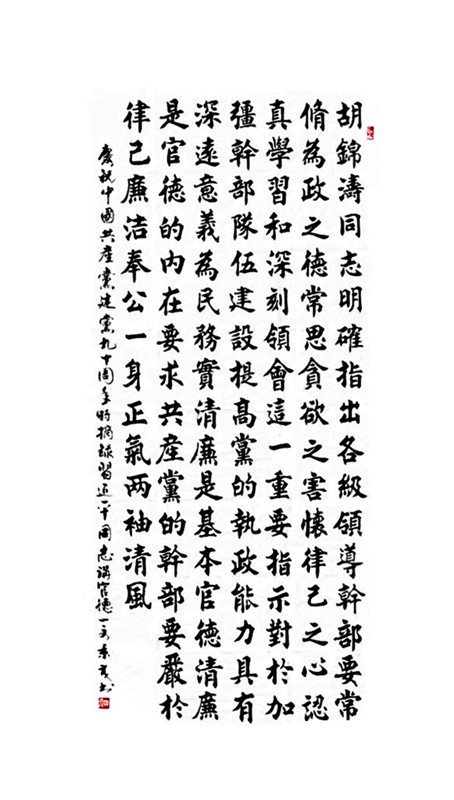 胡錦濤同志明確指出各級領導幹部要常
脩為政之德常思貪欲之害懷律己之心認
真學習和深刻領會這一重要指示對於加
彊幹部隊伍建設提高黨的執政能力具有
深遠意義為民務實清廉是基本官德清廉
是官德的内在要求共産黨的幹部要嚴於
律己廉洁奉公一身正氣两袖清風
慶祝中國共産黨建黨九十周年時摘録習近平同志講官德一文